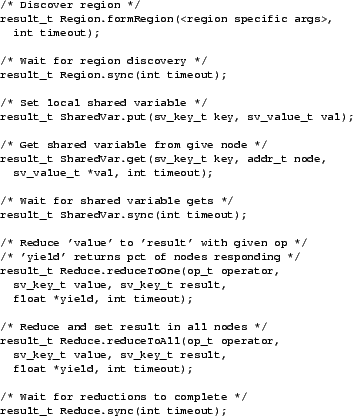 /* Discover region */
result_t Region.formRegion(<region specific args>,
int timeout);
/* Wait for region discovery */
result_t Region.sync(int timeout);
/* Set local shared variable */
result_t SharedVar.put(sv_key_t key, sv_value_t val);
/* Get shared variable from give node */
result_t SharedVar.get(sv_key_t key, addr_t node,
sv_value_t *val, int timeout);
/* Wait for shared variable gets */
result_t SharedVar.sync(int timeout);
/* Reduce 'value' to 'result' with given op */
/* 'yield' returns pct of nodes responding */
result_t Reduce.reduceToOne(op_t operator,
sv_key_t value, sv_key_t result,
float *yield, int timeout);
/* Reduce and set result in all nodes */
result_t Reduce.reduceToAll(op_t operator,
sv_key_t value, sv_key_t result,
float *yield, int timeout);
/* Wait for reductions to complete */
result_t Reduce.sync(int timeout);